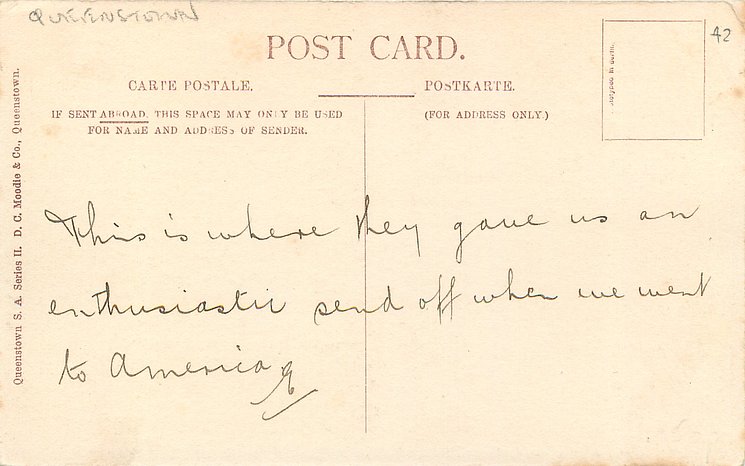 QUEENSTOWN
42
POST CARD.
CARTE POSTALE.
POSTKARTE.
IF SENT ABROAD, THIS SPACE MAY ONLY BE USED
FOR NAME AND ADDRESS OF SENDER.
(FOR ADDRESS ONLY.)
Queenstown S. A. Series II. D. C. Moodie & Co., Queenstown.
This is where they gave us an
enthusiastic send off when we went
to America